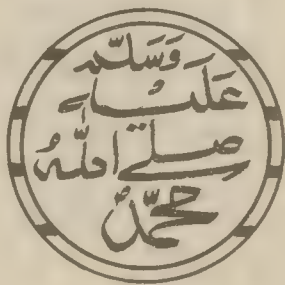 وَسَلَّمَ
عَلَيْهِ
صلى اللهُ
محمّد